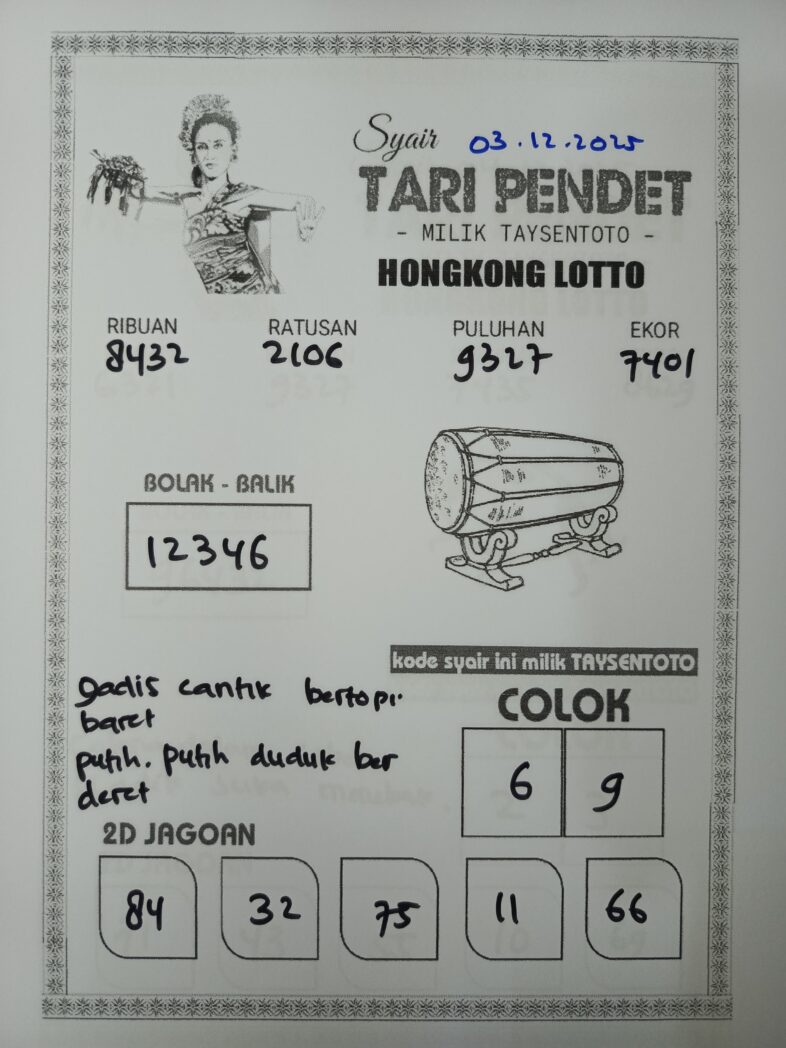 Syair 03.12.2025
TARI PENDET
- MILIK TAYSENTOTO -
HONGKONG LOTTO
RIBUAN RATUSAN PULUHAN EKOR
8432 2106 9327 7401
BOLAK - BALIK
12346
kode syair ini milik TAYSENTOTO
gadis cantik bertopi.
baret
putih. putih duduk ber
deret
COLOK
6 9
2D JAGOAN
84 32 75 11 66